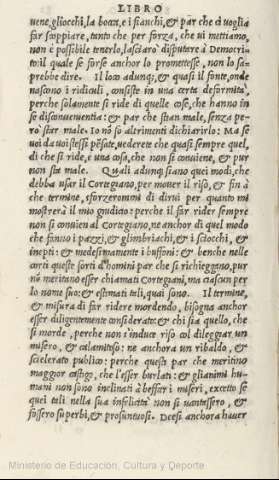 LIBRO
uene, gliocchi, la bocca, e i fianchi, & par che ci uoglia
far scoppiare, tanto che per forza, che ui mettiamo,
non è possibile tenerlo, lasciaro disputare à Democri-
to: il quale se forse anchor lo promettesse, non lo sa-
prebbe dire. Il loco adunq;, & quasi il fonte, onde
nascono i ridiculi, consiste in una certa deformità,
perche solamente si ride di quelle cose, che hanno in
se disconuenientia: & par che stian male, senza pe-
rò star male. Io nō so altrimenti dichiarirlo: Ma se
uoi da uoi stessi pēsate, uederete che quasi sempre quel,
di che si ride, e una cosa, che non si conuiene, & pur
non sta male. Quali adunq; siano quei modi, che
debba usar il Cortegiano, per mouer il riso, & fin à
che termine, sforzerommi di dirui per quanto mi
mostrerà il mio giudicio: perche il far rider sempre
non si conuien al Cortegiano, ne anchor di quel modo
che fanno i pazzi, & gl'imbriachi, & i sciocchi, &
inepti: & medesimamente i buffoni: & benche nelle
corti queste sorti d'homini par che si richieggano, pur
nō meritano esser chiamati Cortegiani, ma ciascun per
lo nome suo: & estimati tali, quai sono. Il termine,
& misura di far ridere mordendo, bisogna anchor
esser diligentemente considerato: & chi sia quello, che
si morde, perche non s'induce riso col dileggiar un
misero, & calamitoso: ne anchora un ribaldo, &
scelerato publico: perche questi par che meritino
maggior castigo, che l'esser burlati: & gli animi hu-
mani non sono inclinati à beffar i miseri, excetto se
quei tali nella sua infelicità non si uantassero, &
fossero superbi, & prosuntuosi. Deesi anchora hauer
Ministerio de Educación, Cultura y Deporte